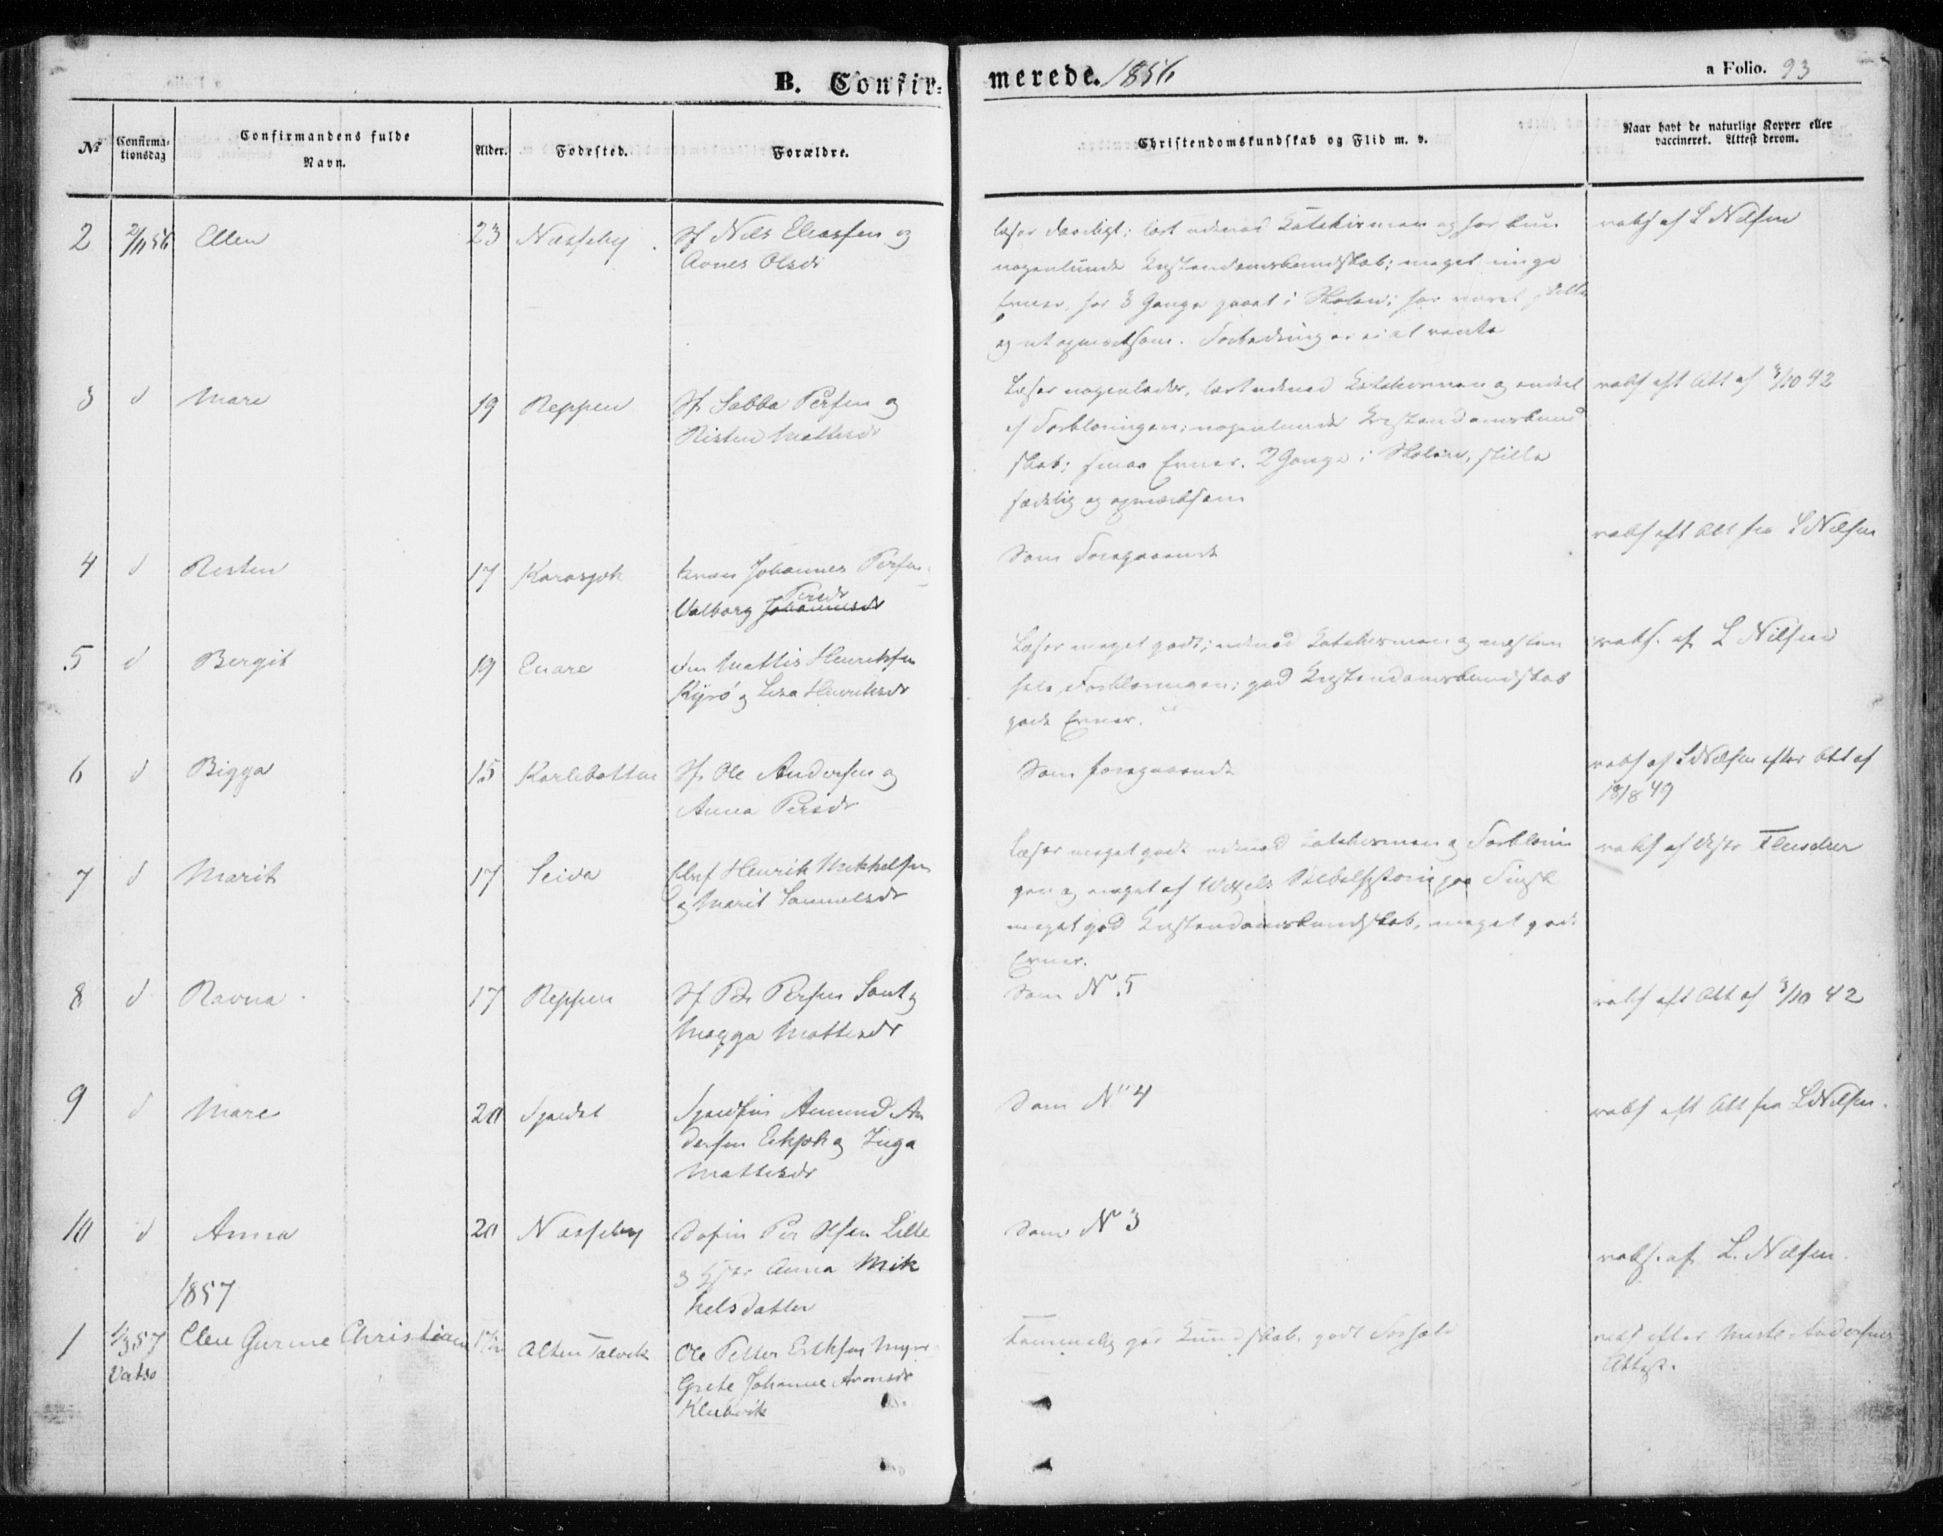 B. Confir-
merede. 1856
a Folio. 93
No
Confirma-
tionsdag
Confirmandens fulde
Navn.
Alder.
Fødested.
Forældre.
Christendomskundskab og Flid m. v.
Naar havt de naturlige Kopper eller
vaccineret. Attest derom.
2 2/11 56 Ellen 23 Næsseby Sf Nils Eliassen og
Agnes Olsdr
læser daarligt; lært udenad Katekismen og har kun
nogenlunde Kristendomskundskab; meget ringe
Evner, har 3 Gange gaaet i Skolen; har været stille
og opmærksom. Forbedring er ei at vente
vaks af L Nilsen
3 d Mare 19 Reppen Sf Sabba Persen og
Risten Mattisdr
Læser nogenledes, lært udenad Katekismen og endel
af Forklaringen; nogenlunde Kristendomskund
skab; smaa Evner. 2 Gange i Skolen, stille
sædelig og opmærksom
vaks eft Att af 3/10 42
4 d Risten 17 Karasjok kvæn Johannes Persen
Valborg Johannesdr Persdr
Som Foregaaende
vaks eft Att fra L Nilsen
5 d Bergit 19 Enare Mattis Henriksen
Kyrö og Lisa Henriksdr
Læser meget godt; udenad Katekismen og næsten
hele Forklaringen; god Kristendomskundskab
gode Evner.
vaks. af L Nilsen
6 d Bigga 15 Karlebotten Sf Ole Andersen og
Anna Persdr
Som foregaaende
vaks af L Nilsen efter Att af
18/8 49
7 d Marit 17 Seida Elvf Henrik Mikkelsen
og Marit Samuelsdr
Læser meget godt udenad Katekismen og Forklarin
gen og meget af Wexels Bibelhistorie paa Finsk
meget god Kristendomskundskab, meget gode
Evner.
vaks af
8 d Ravna 17 Reppen Sf Per Persen og
Magga Mattisdr
Som No 5
vaks eft Att af 3/10 42
9 d Mare 20 Amund An
dersen og Inga
Mattisdr
Som No 4
vaks eft Att fra L Nilsen.
10 d Anna 20 Næsseby Søfin Per Olsen Lille
og Anna Mik
kelsdatter
Som No 3
vaks. af L. Nilsen.
1857
1 57
Vadsø
Elen Gurine Christiane 17 Alten Talvik Ole Petter Eriksen
Grete Johanne Aronsdr
Klubvik
Temmelig god Kundskab, godt Forhold
vaks efter Andersens
Attest.